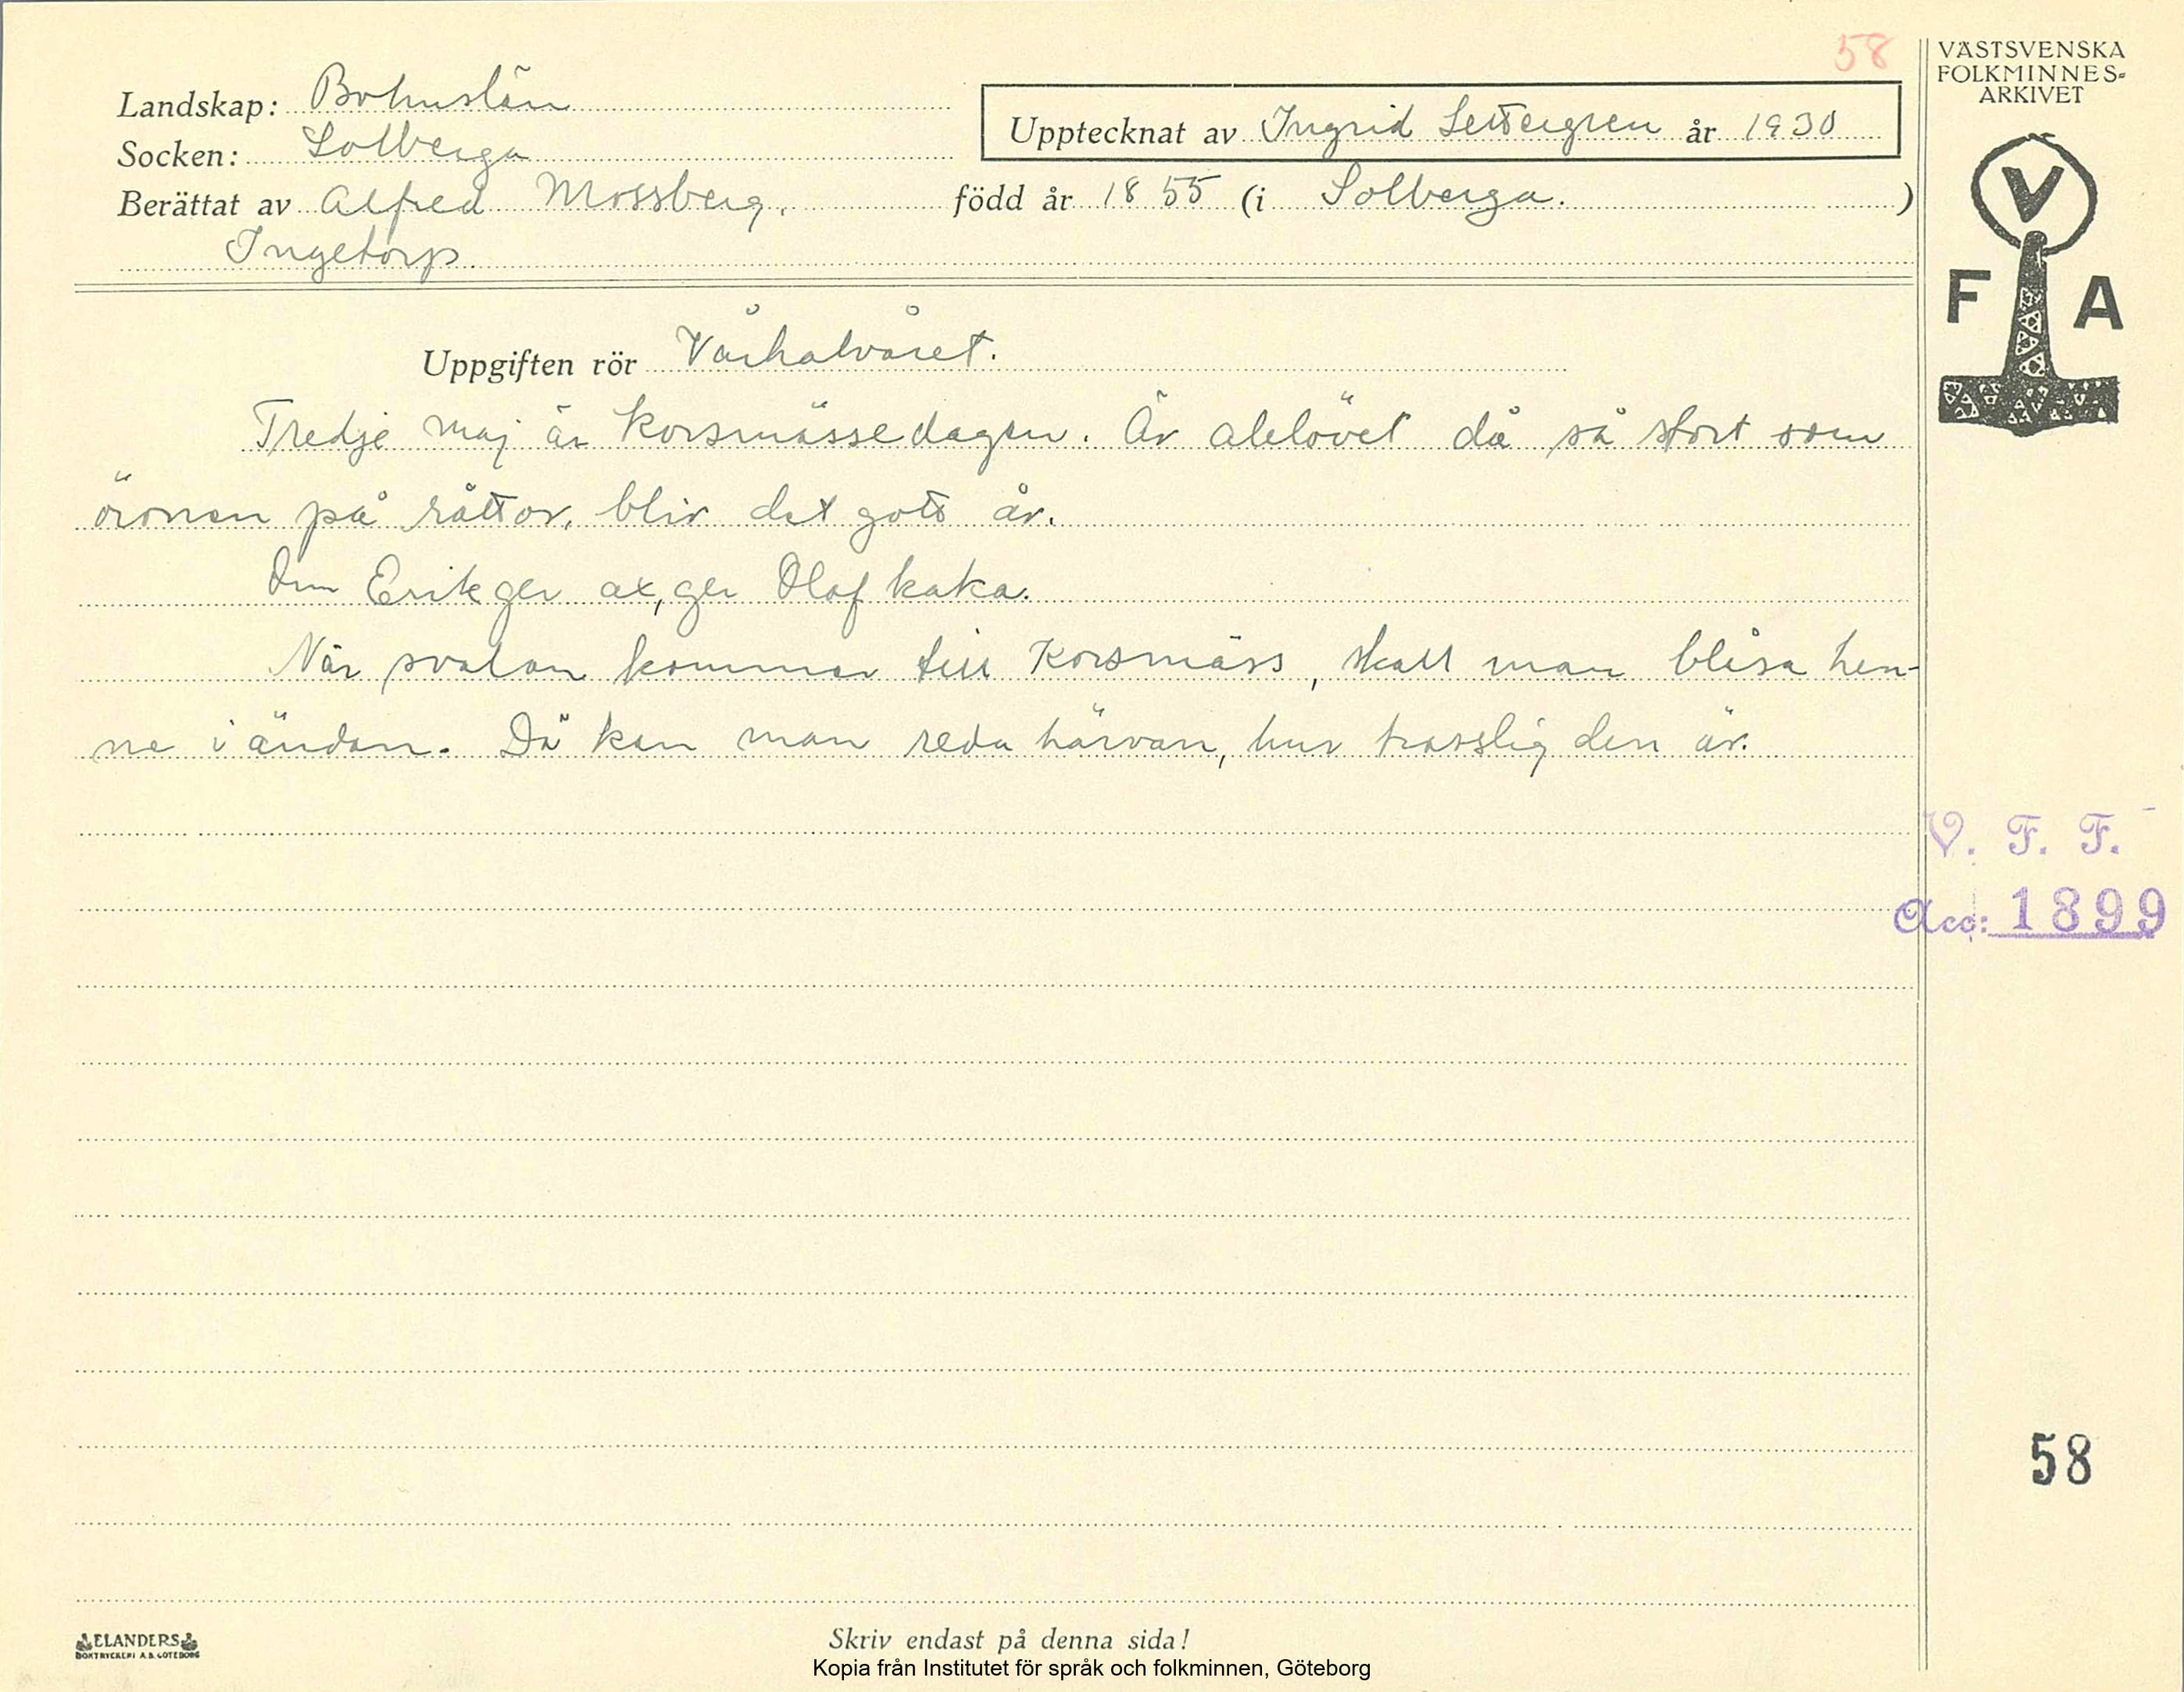 58
VÄSTSVENSKA
FOLKMINNES-
ARKIVET
Landskap: Bohuslän
Upptecknat av Ingrid Settergren år 1930
Socken: Solberga
Berättat av Alfred Mossberg, född år 1855 (i Solberga. )
Ingetorp.
V
F A
Uppgiften rör Vårhalvåret.
Tredje maj är korsmässedagen. Är alelövet då så stort som
öronen på råttor, blir det gott år.
Om Erik ger ax, ger Olof kaka.
När svalan kommer till Korsmäss, skall man blåsa hen-
ne i ändan. Då kan man reda härvan, hur trasslig den är.
V. F. F.
Acc: 1899
58
ELANDERS
BOKTRYCKERI A.B. GÖTEBORG
Skriv endast på denna sida!
Kopia från Institutet för språk och folkminnen, Göteborg